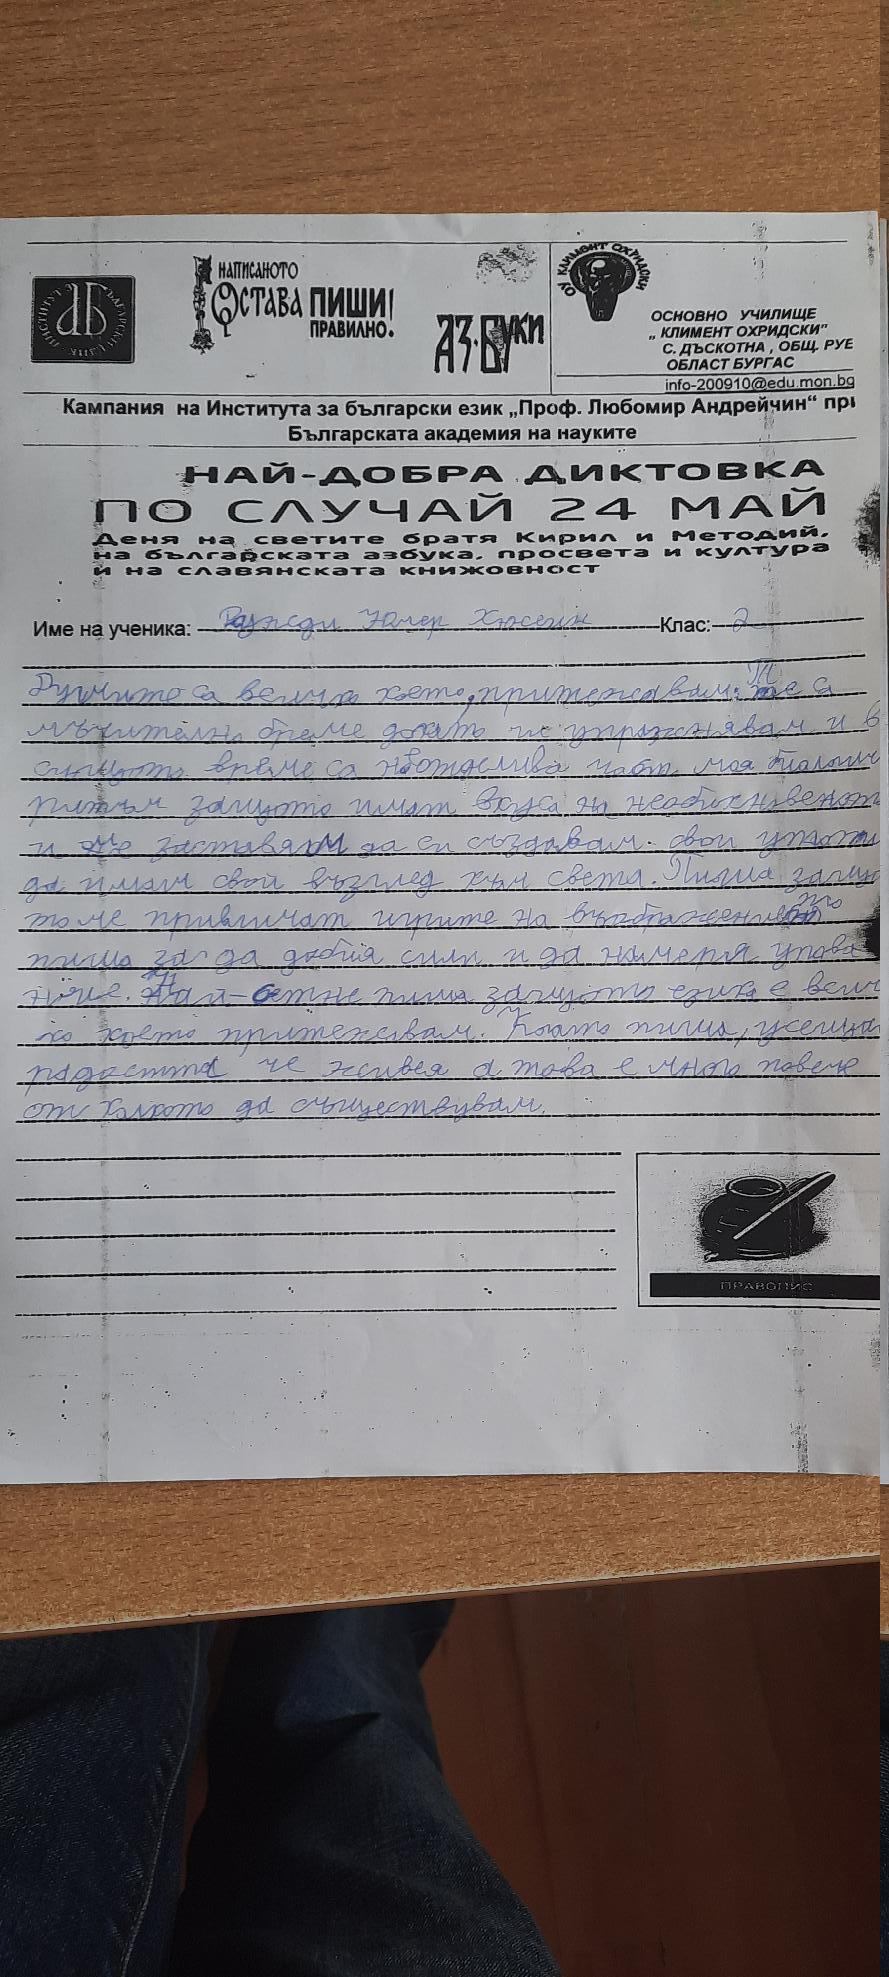 ИНСТИТУТ ЗА БЪЛГАРСКИ ЕЗИК
НАПИСАНОТО
ОСТАВА ПИШИ
ПРАВИЛНО!
АЗ·БУКИ
ОУ КЛИМЕНТ ОХРИДСКИ
ОСНОВНО УЧИЛИЩЕ
„ КЛИМЕНТ ОХРИДСКИ"
С. ДЪСКОТНА , ОБЩ. РУЕ
ОБЛАСТ БУРГАС
info-200910@edu.mon.bg
Кампания на Института за български език „Проф. Любомир Андрейчин“ при
Българската академия на науките
НАЙ-ДОБРА ДИКТОВКА
ПО СЛУЧАЙ 24 МАЙ
Деня на светите братя Кирил и Методий,
на българската азбука, просвета и култура
и на славянската книжовност
Име на ученика: Хюсеин Клас: 2
Думите са всичко което, притежавам. Те са
мъчително бреме докато ги упражнявам и в
същото време са част моя
ритъм защото имат вкуса на
и ме заставят да си създавам свои
да имам свой възглед към света. Пиша защо
то ме привличат игрите на
пиша за да добия сили и да намеря упова
ние. Най- пиша защото езика е всич
ко което притежавам. Когато пиша, усещам
радостта че живея а това е много повече
от колкото да съществувам.
ПРАВОПИС